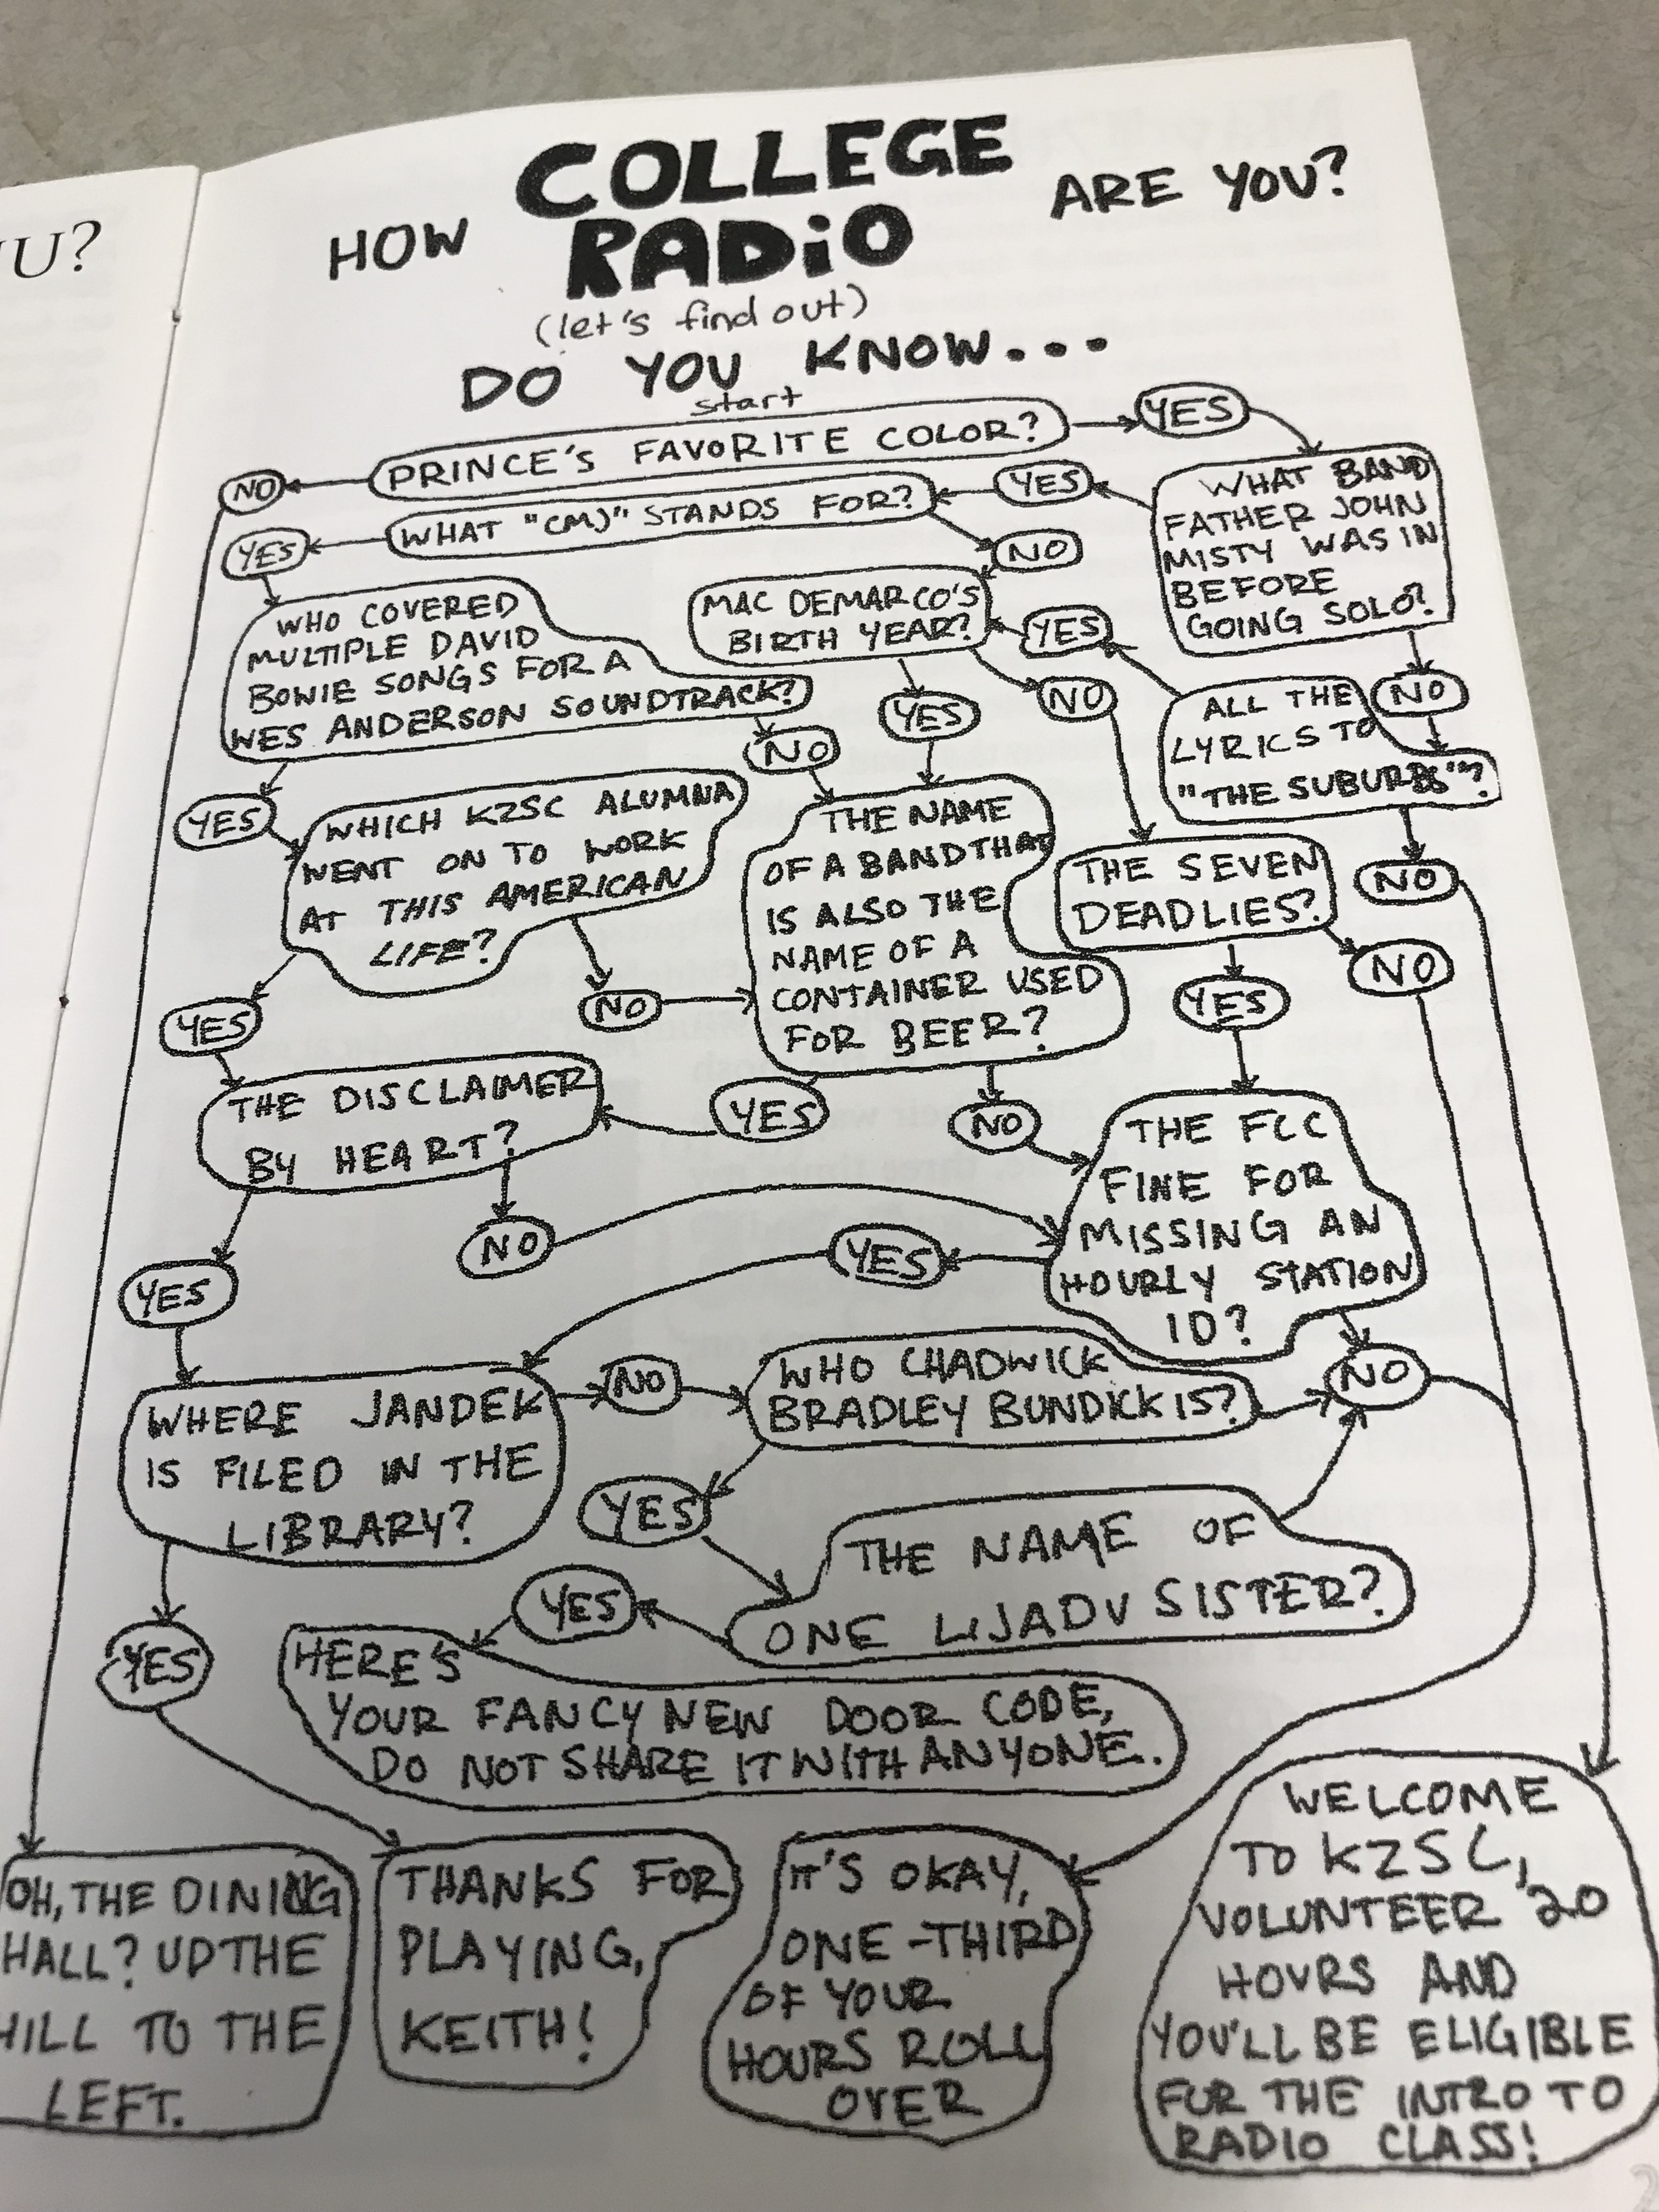 U?
HOW COLLEGE RADiO ARE YOU?
(let's find out)
DO YOU KNOW...
start
PRINCE'S FAVORITE COLOR?
YES
NO
WHAT BAND
FATHER JOHN
MISTY WAS IN
BEFORE
GOING SOLO?
YES
WHAT "CMJ" STANDS FOR?
YES
NO
WHO COVERED
MULTIPLE DAVID
BOWIE SONGS FOR A
WES ANDERSON SOUNDTRACK?
MAC DEMARCO'S
BIRTH YEAR?
YES
NO
ALL THE
LYRICS TO
"THE SUBURBS"?
NO
YES
NO
YES
NO
WHICH KZSC ALUMNA
WENT ON TO WORK
AT THIS AMERICAN
LIFE?
THE NAME
OF A BAND THAT
IS ALSO THE
NAME OF A
CONTAINER USED
FOR BEER?
THE SEVEN
DEADLIES?
NO
YES
NO
YES
NO
THE DISCLAIMER
BY HEART?
YES
NO
THE FCC
FINE FOR
MISSING AN
HOURLY STATION
ID?
YES
NO
YES
NO
WHERE JANDEK
IS FILED IN THE
LIBRARY?
NO
WHO CHADWICK
BRADLEY BUNDICK IS?
YES
THE NAME OF
ONE LIJADU SISTER?
YES
YES
HERE'S
YOUR FANCY NEW DOOR CODE,
DO NOT SHARE IT WITH ANYONE.
OH, THE DINING
HALL? UP THE
HILL TO THE
LEFT.
THANKS FOR
PLAYING,
KEITH!
IT'S OKAY,
ONE-THIRD
OF YOUR
HOURS ROLL
OVER
WELCOME
TO KZSC,
VOLUNTEER 20
HOURS AND
YOU'LL BE ELIGIBLE
FUR THE INTRO TO
RADIO CLASS!
2